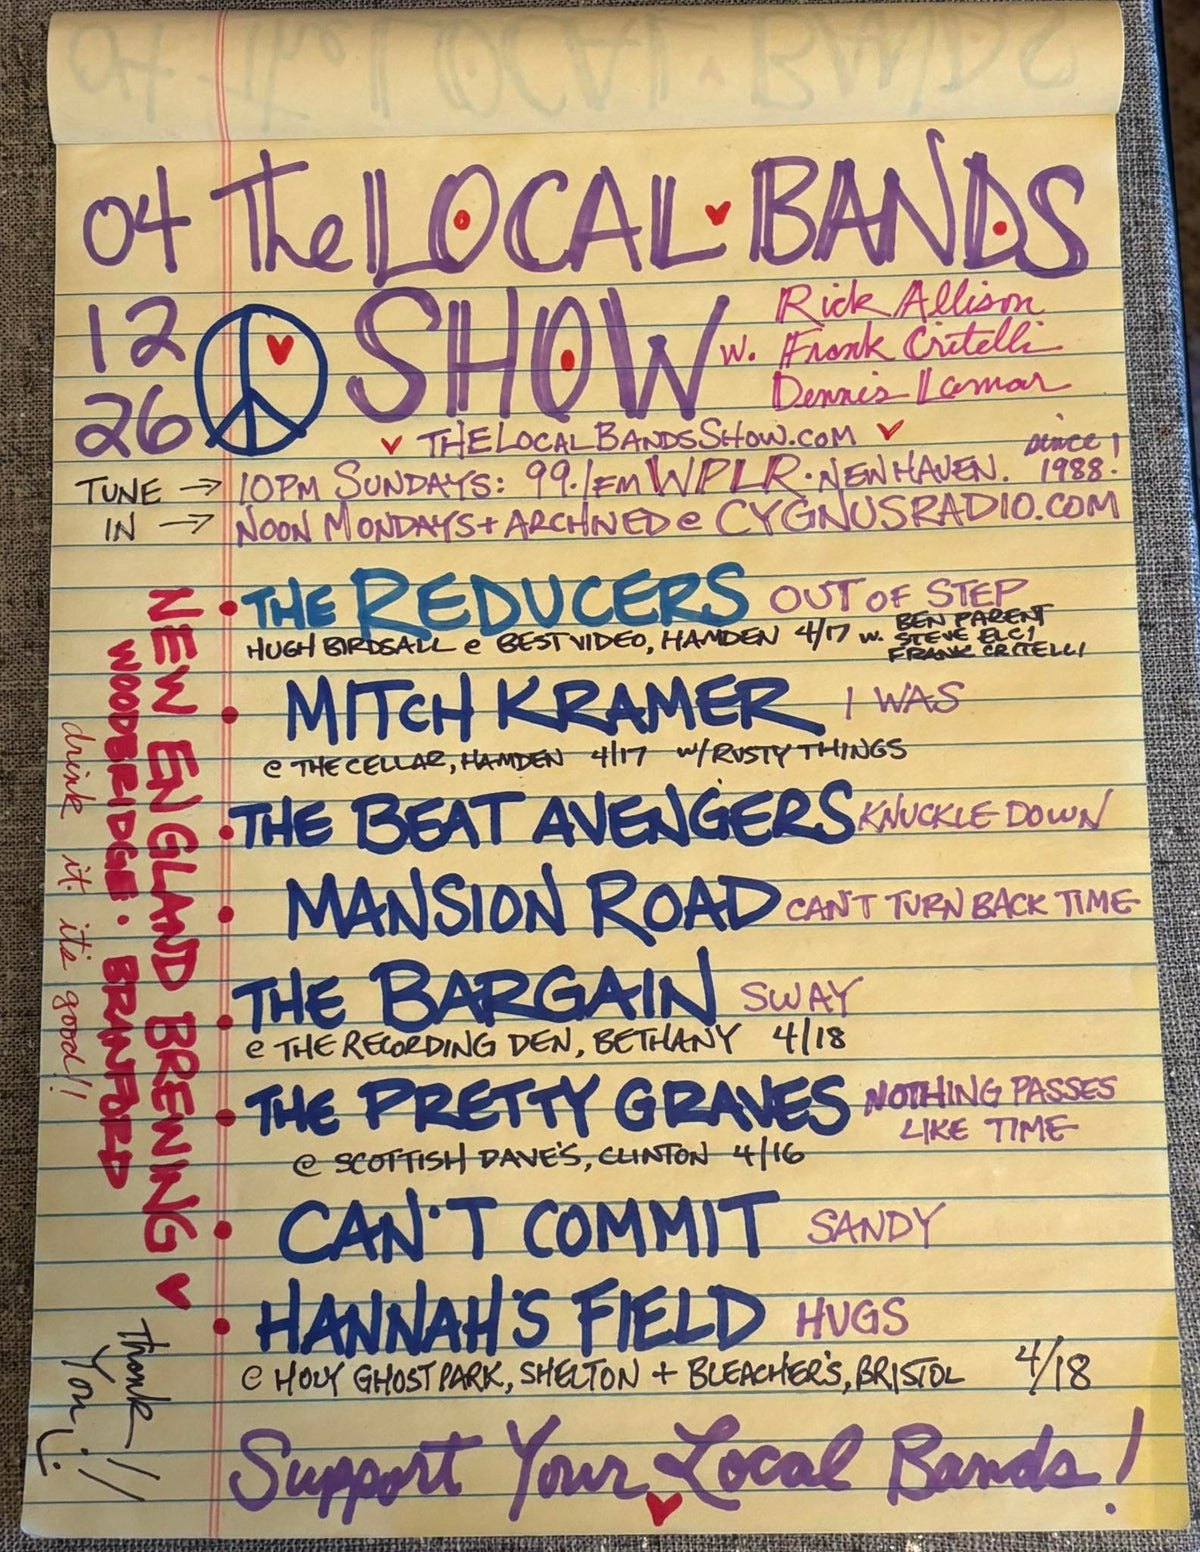 04 The LOCAL BANDS
12 SHOW
26
w. Rick Allison
Frank Critelli
Dennis Lamar
THELOCALBANDSSHOW.COM
TUNE → 10PM SUNDAYS: 99.1FM WPLR · NEW HAVEN. since 1988.
IN → NOON MONDAYS + ARCHIVED @ CYGNUSRADIO.COM
THE REDUCERS OUT OF STEP
HUGH BIRDSALL @ BEST VIDEO, HAMDEN 4/17 w. BEN PARENT
STEVE ELCI
FRANK CRITELLI
MITCH KRAMER I WAS
@ THE CELLAR, HAMDEN 4/17 W/RUSTY THINGS
THE BEAT AVENGERS KNUCKLE DOWN
MANSION ROAD CAN'T TURN BACK TIME
THE BARGAIN SWAY
@ THE RECORDING DEN, BETHANY 4/18
THE PRETTY GRAVES NOTHING PASSES
LIKE TIME
@ SCOTTISH DAVE'S, CLINTON 4/16
CAN'T COMMIT SANDY
HANNAH'S FIELD HUGS
@ HOLY GHOST PARK, SHELTON + BLEACHER'S, BRISTOL 4/18
Support Your Local Bands!
NEW ENGLAND BREWING
WOODBRIDGE · BRANFORD
drink it. it's good!!
Thank
You!!